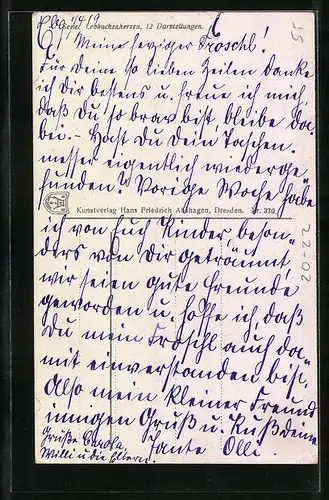 Serie: Lebkuchenherzen, 12 Darstellungen.
Mein herziger Froschl!
Für Deine so lieben Zeilen danke
ich Dir bestens u. freue ich mich,
daß Du so brav bist, bleibe da-
bei. - Hast Du Dein Taschen-
messer eigentlich wiederge-
funden? Vorige Woche habe
Kunstverlag Hans Friedrich Abshagen, Dresden. Nr. 370.
ich von Euch Kinder beson-
ders von Dir geträumt,
wir seien gute Freunde
geworden u. hoffe ich, daß
Du mein Froschl auch da-
mit einverstanden bist.
Also mein kleiner Freund
innigen Gruß u. Kuß deine
Tante Olli.
Grüße Carola,
Willi u. die Eltern.
22-02